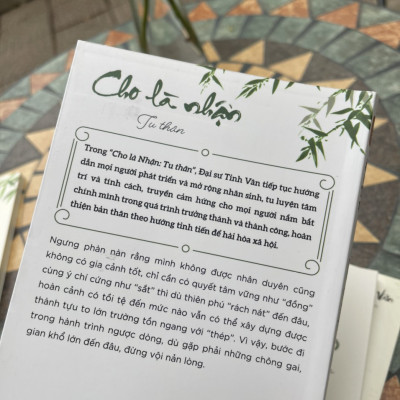 Cho là nhận
Tu thân
Trong "Cho là Nhận: Tu thân", Đại sư Tinh Vân tiếp tục hướng
dẫn mọi người phát triển và mở rộng nhân sinh, tu luyện tâm
trí và tính cách, truyền cảm hứng cho mọi người nắm bắt
chính mình trong quá trình trưởng thành và thành công, hoàn
thiện bản thân theo hướng tinh tiến để hài hòa xã hội.
Ngưng phàn nàn rằng mình không được nhân duyên cũng
không có gia cảnh tốt, chỉ cần có quyết tâm vững như "đồng"
cùng ý chí cứng như "sắt" thì dù thiên phú "rách nát" đến đâu,
hoàn cảnh có tồi tệ đến mức nào vẫn có thể xây dựng được
thành tựu to lớn trường tồn ngang với "thép". Vì vậy, bước đi
trong hành trình ngược dòng, dù gặp phải những chông gai,
gian khổ lớn đến đâu, đừng vội nản lòng.